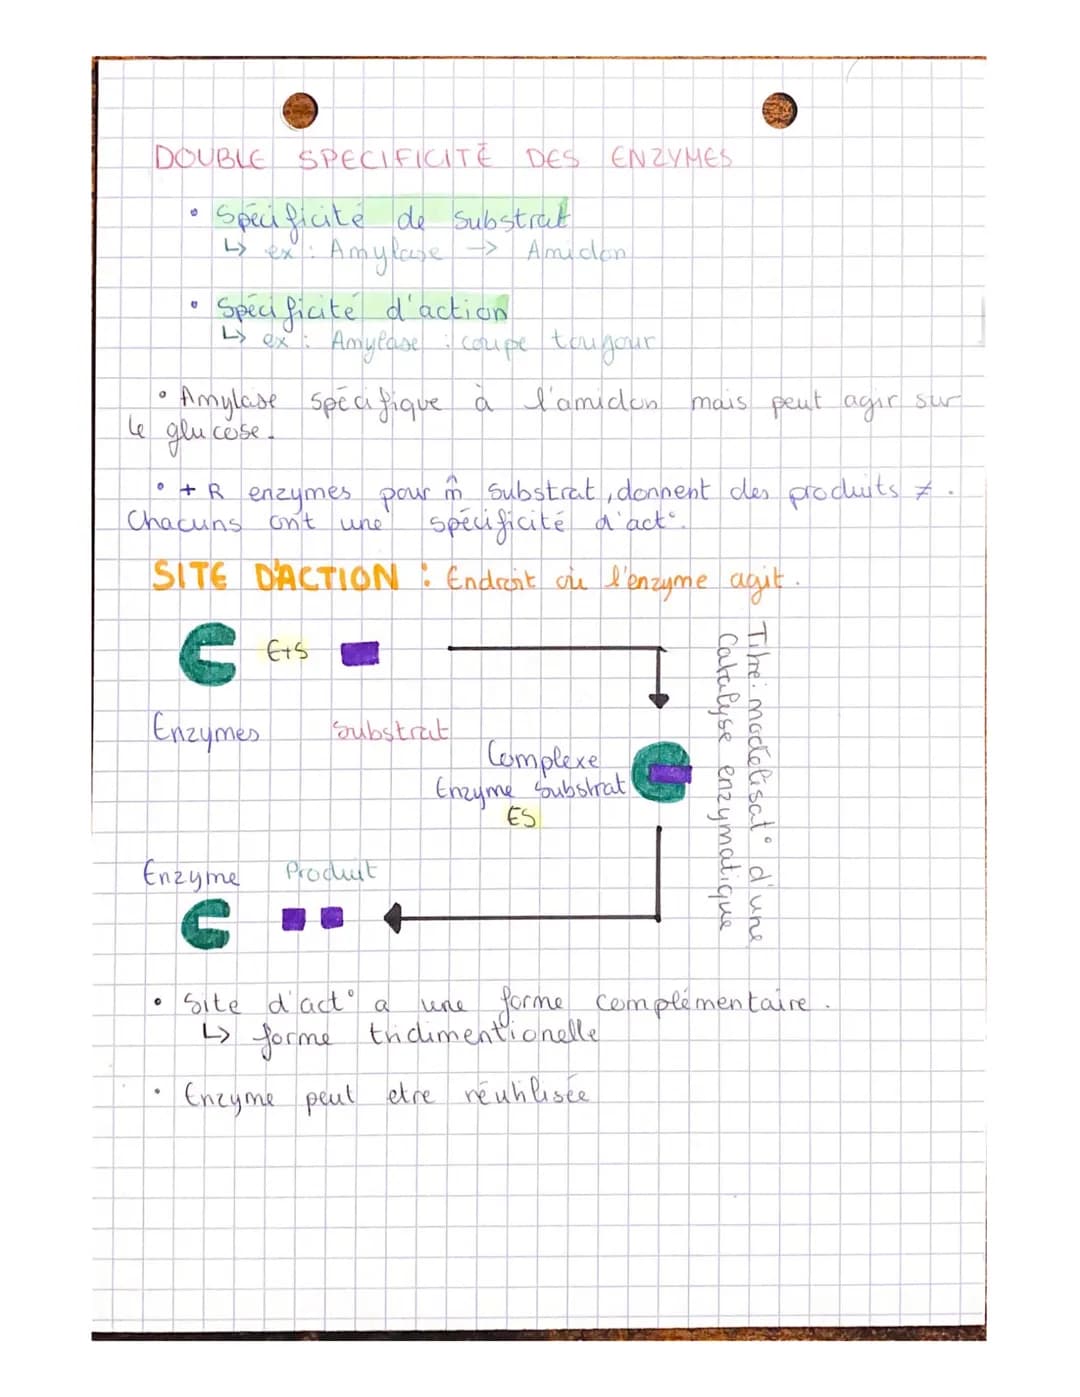 DOUBLE SPECIFICITÉ DES ENZYMES
• Spécificité de substrat
↳ ex : Amylase → Amidon
• Spécificité d'action
↳ ex : Amylase : coupe tougour
• Amylase spécifique à l'amidon mais peut agir sur
le glucose.
• + R enzymes pour m̂ substrat, donnent des produits ≠.
Chacuns ont une spécificité d'act°.
SITE D'ACTION : Endroit où l'enzyme agit.
E+S
Enzymes Substrat
Complexe
Enzyme Substrat
ES
Titre: modélisat° d'une
Catalyse enzymatique
Enzyme Produit
• Site d'act° a une forme complémentaire.
↳ forme tridimentionelle
• Enzyme peut etre réutilisée